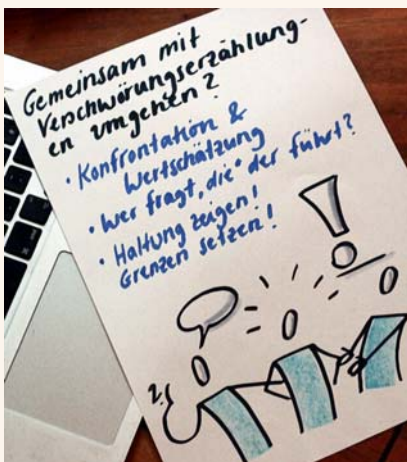 Gemeinsam mit
Verschwörungserzählung-
en umgehen?
• Konfrontation &
Wertschätzung
• Wer fragt, die* der führt?
• Haltung zeigen!
Grenzen setzen!
?
!